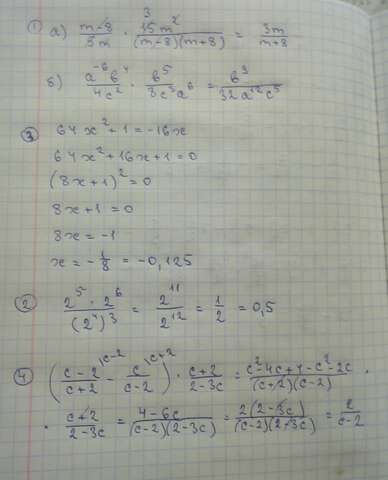 ① а) (m-8)/(5m) · (15m²)/((m-8)(m+8)) = 3m/(m+8)
б) (a⁻⁶b⁴)/(4c²) · b⁵/(8c³a⁶) = b⁹/(32a¹²c⁵)
③ 64x²+1=-16x
64x²+16x+1=0
(8x+1)²=0
8x+1=0
8x=-1
x=-1/8=-0,125
② (2⁵·2⁶)/(2⁴)³ = 2¹¹/2¹² = 1/2 = 0,5
④ ((c-2)/(c+2) \c-2 - c/(c-2) \c+2) · (c+2)/(2-3c) = (c²-4c+4-c²-2c)/((c+2)(c-2)) ·
· (c+2)/(2-3c) = (4-6c)/((c-2)(2-3c)) = 2(2-3c)/((c-2)(2-3c)) = 2/(c-2)